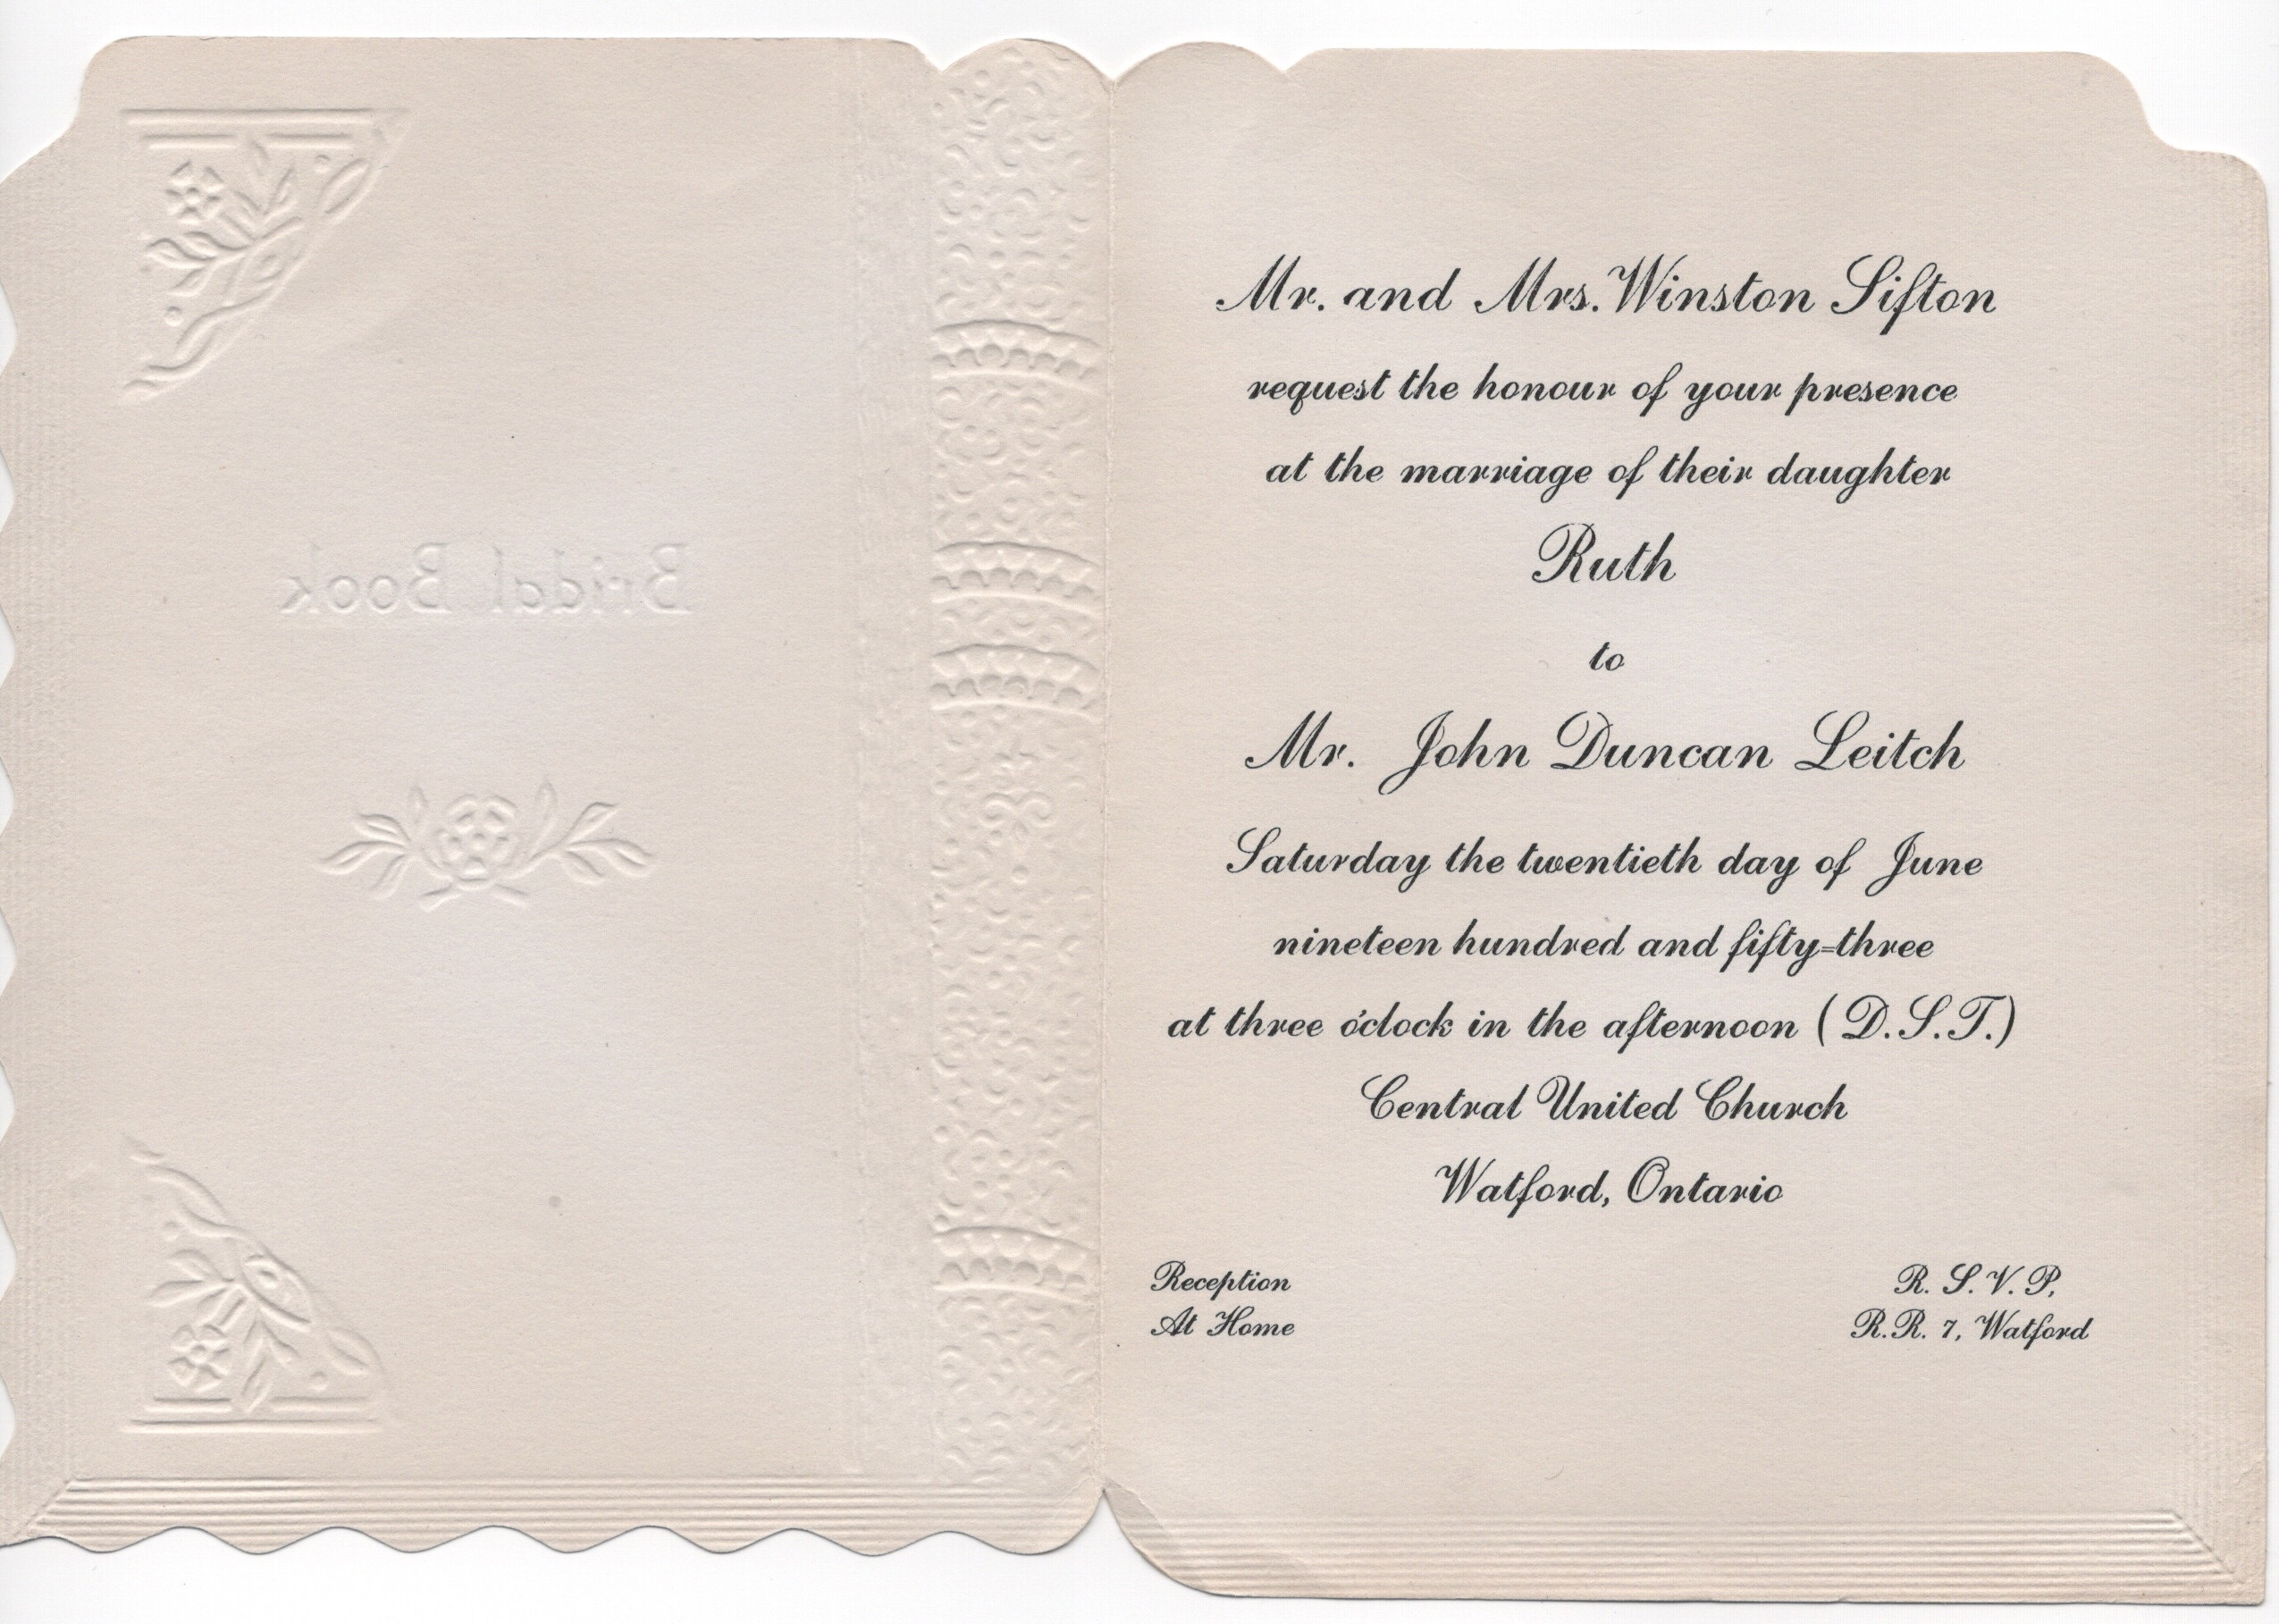 Bridal Book
Mr. and Mrs. Winston Sifton
request the honour of your presence
at the marriage of their daughter
Ruth
to
Mr. John Duncan Leitch
Saturday the twentieth day of June
nineteen hundred and fifty=three
at three o'clock in the afternoon (D.S.T.)
Central United Church
Watford, Ontario
Reception
At Home
R. S. V. P.
R.R. 7, Watford